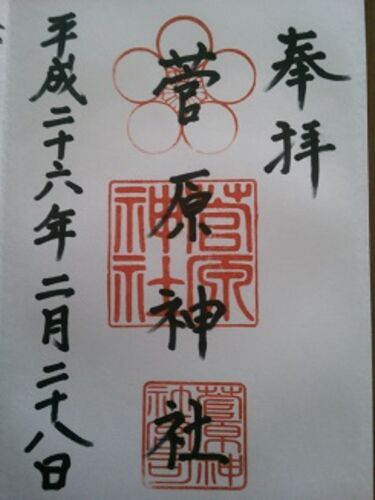 奉拝
菅原神社
菅原神社
菅原神
平成二十六年二月二十八日